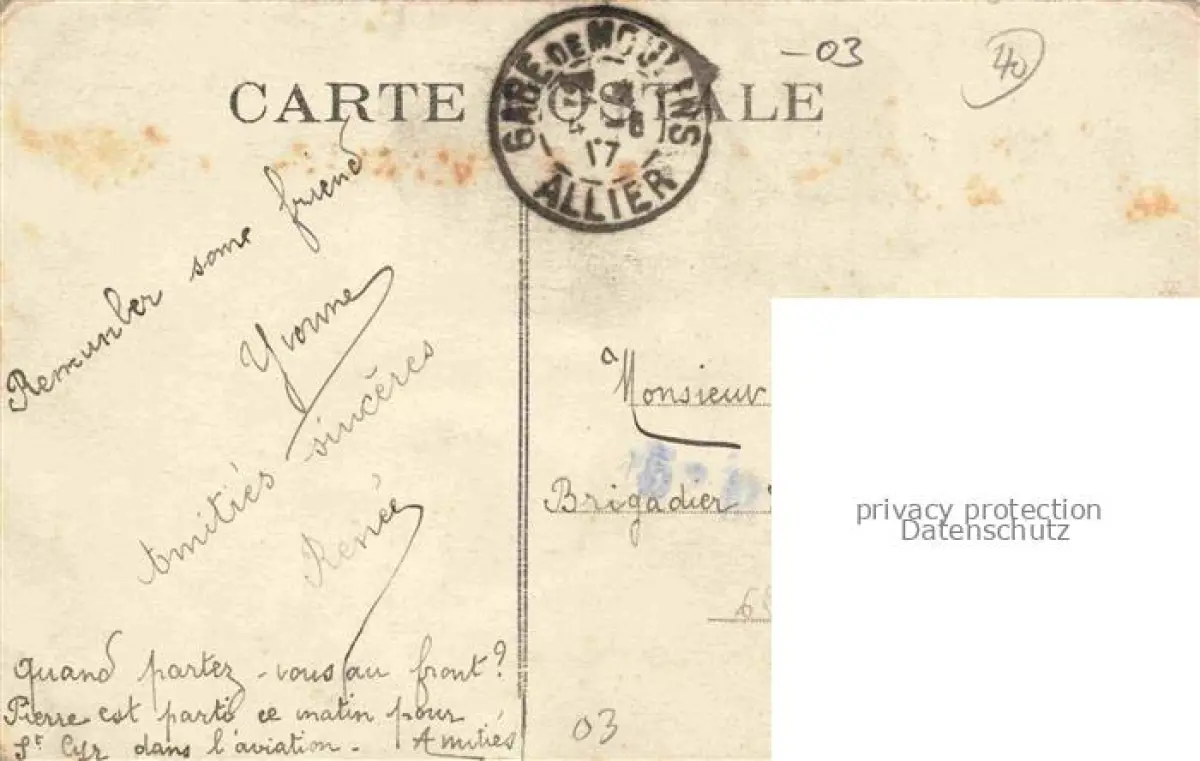 CARTE POSTALE
GARE DE MOULINS
17
ALLIER
-03
40
Remember some friend
Yvonne
Amitiés sincères
Renée
Quand partez-vous au front?
Pierre est parti ce matin pour
St Cyr dans l'aviation - Amitiés
a
Monsieur
Brigadier
03
privacy protection
Datenschutz